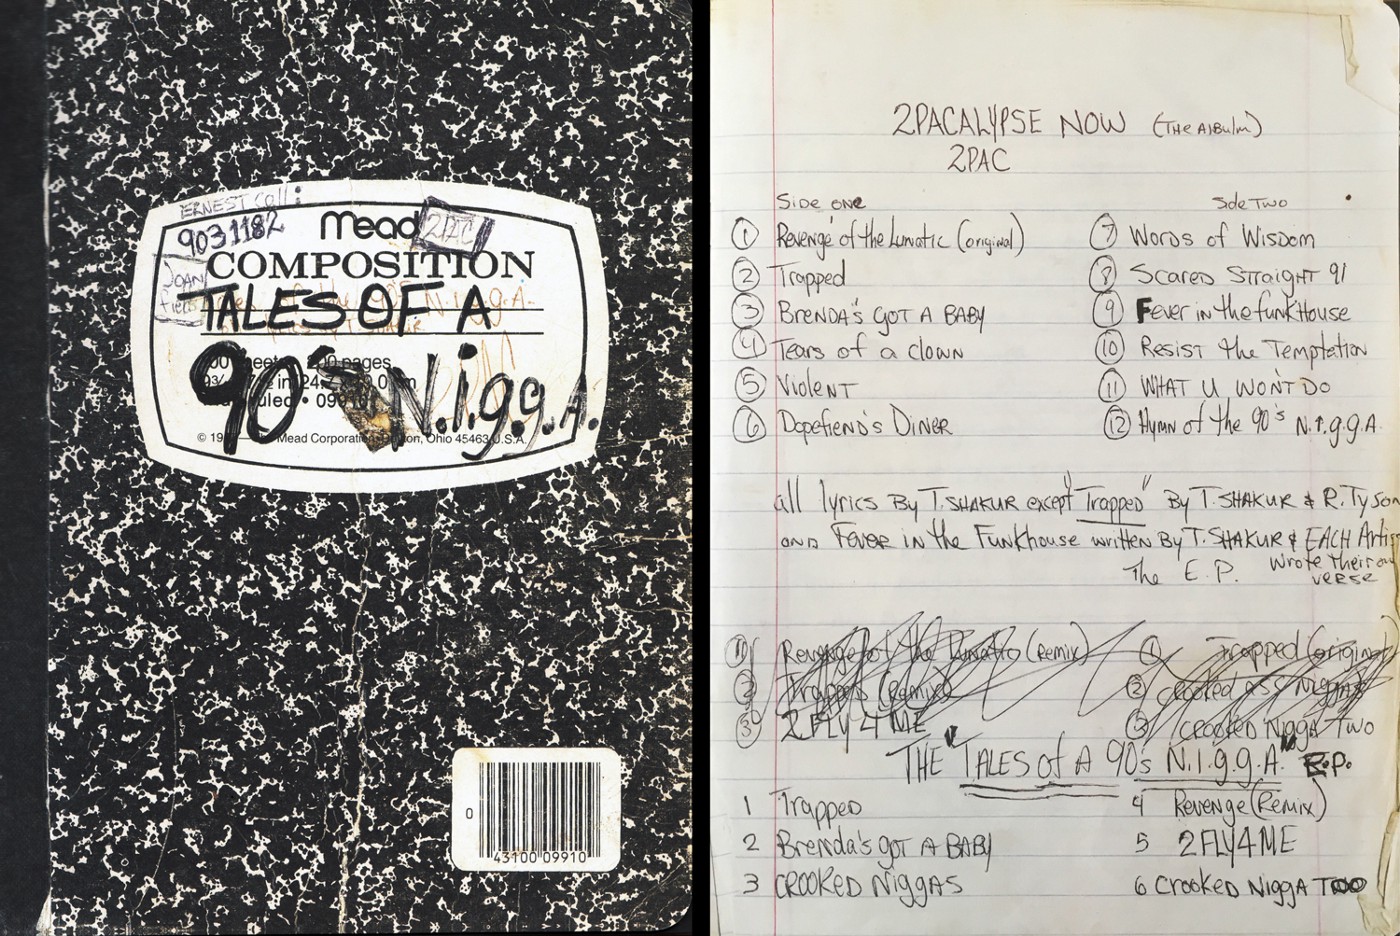 ERNEST Call:
9031182
Mead
2PAC
COMPOSITION
JOAN
Field
TALES OF A
90's N.i.g.g.A.
© 19 Mead Corporation, Ohio 45463 U.S.A.
0
43100 09910
2PACALYPSE NOW (THE AlBUlm)
2PAC
Side one
1 Revenge of the Lunatic (original)
2 Trapped
3 BRENDA'S GOT A BABY
4 Tears of a clown
5 Violent
6 Dopefiend's Diner
Side Two
7 Words of Wisdom
8 Scared Straight 91
9 Fever in the funkHouse
10 Resist the Temptation
11 WHAT U WON'T DO
12 Hymn of the 90's N.i.g.g.A.
all lyrics By T.SHAKUR except "Trapped" By T.SHAKUR & R.Tyson
and Fever in the Funkhouse written By T.SHAKUR & EACH Artist
wrote their own
verse
The E.P.
1 Revenge of the Lunatic (remix)
2 Trapped (remix)
3 2 FLY 4 ME
1 Trapped (original)
2 crooked ass niggas
3 crooked nigga Two
THE "TALES of A 90's N.i.g.g.A." E.P.
1 Trapped
2 Brenda's got A BABY
3 CROOKED NiggAS
4 Revenge (Remix)
5 2FLY4ME
6 Crooked Nigga TOO